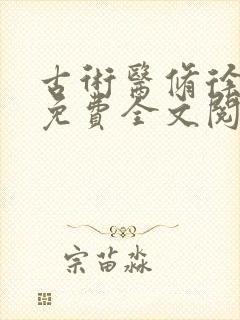 古術醫脩徐
免費全文閱
宗苗淼